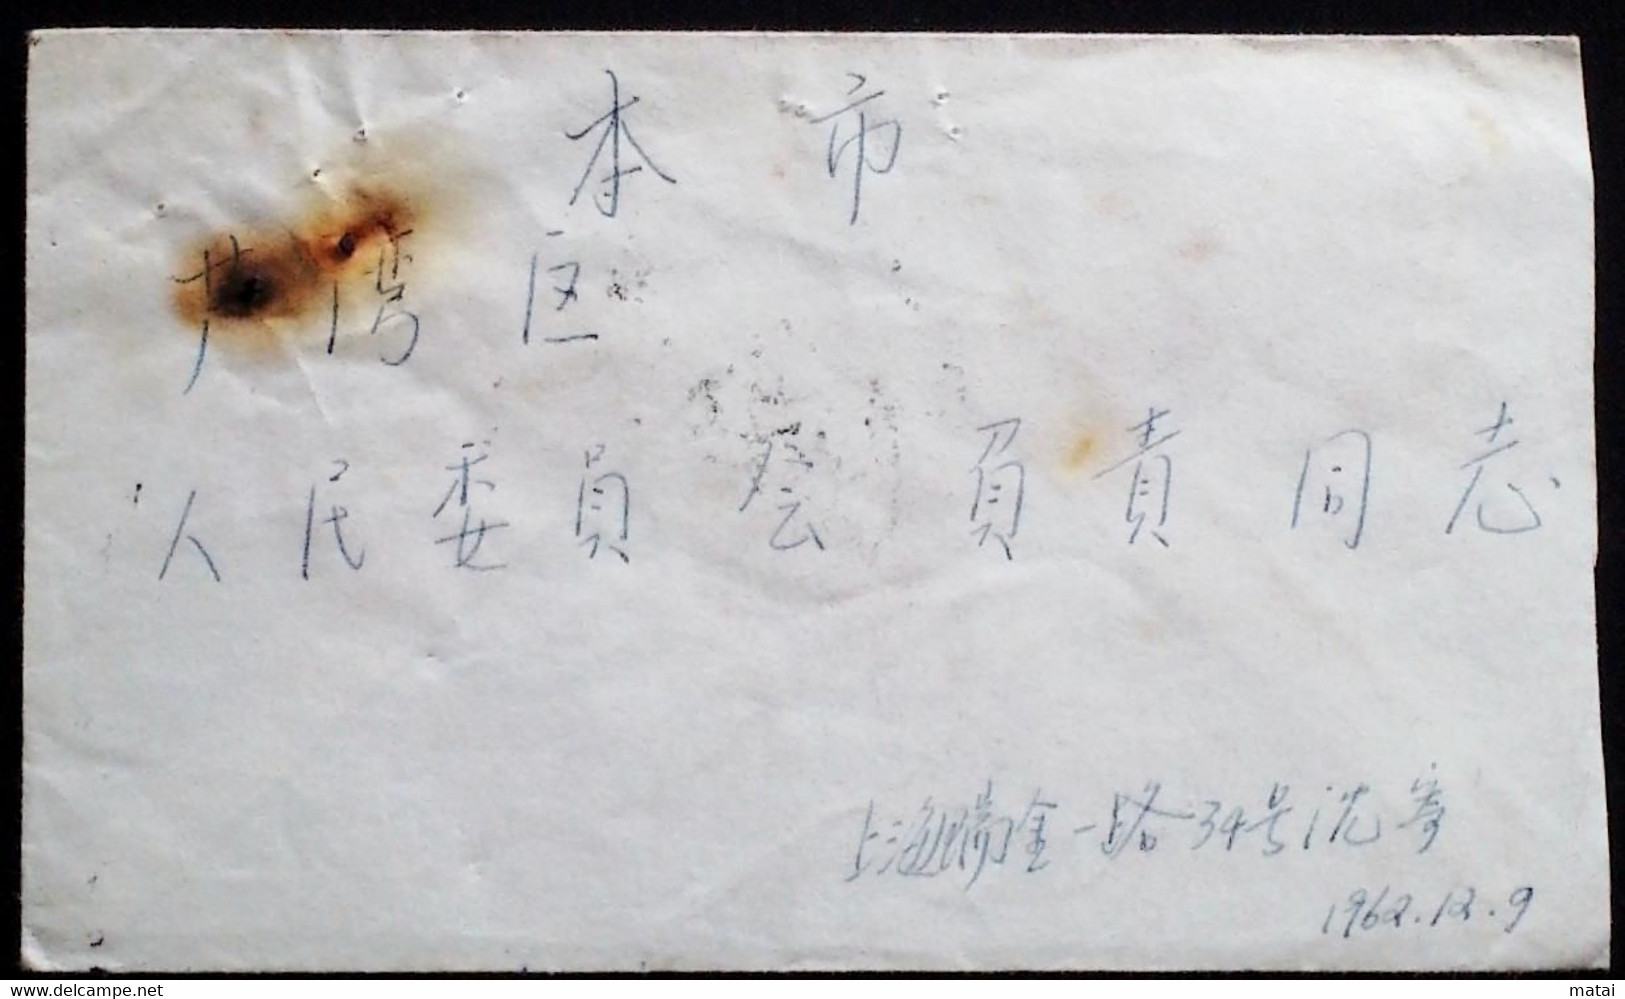 本市
芦湾区
人民委员会負責同志
上海瑞金一路34号沈寄
1962.12.9
www.delcampe.net
matai